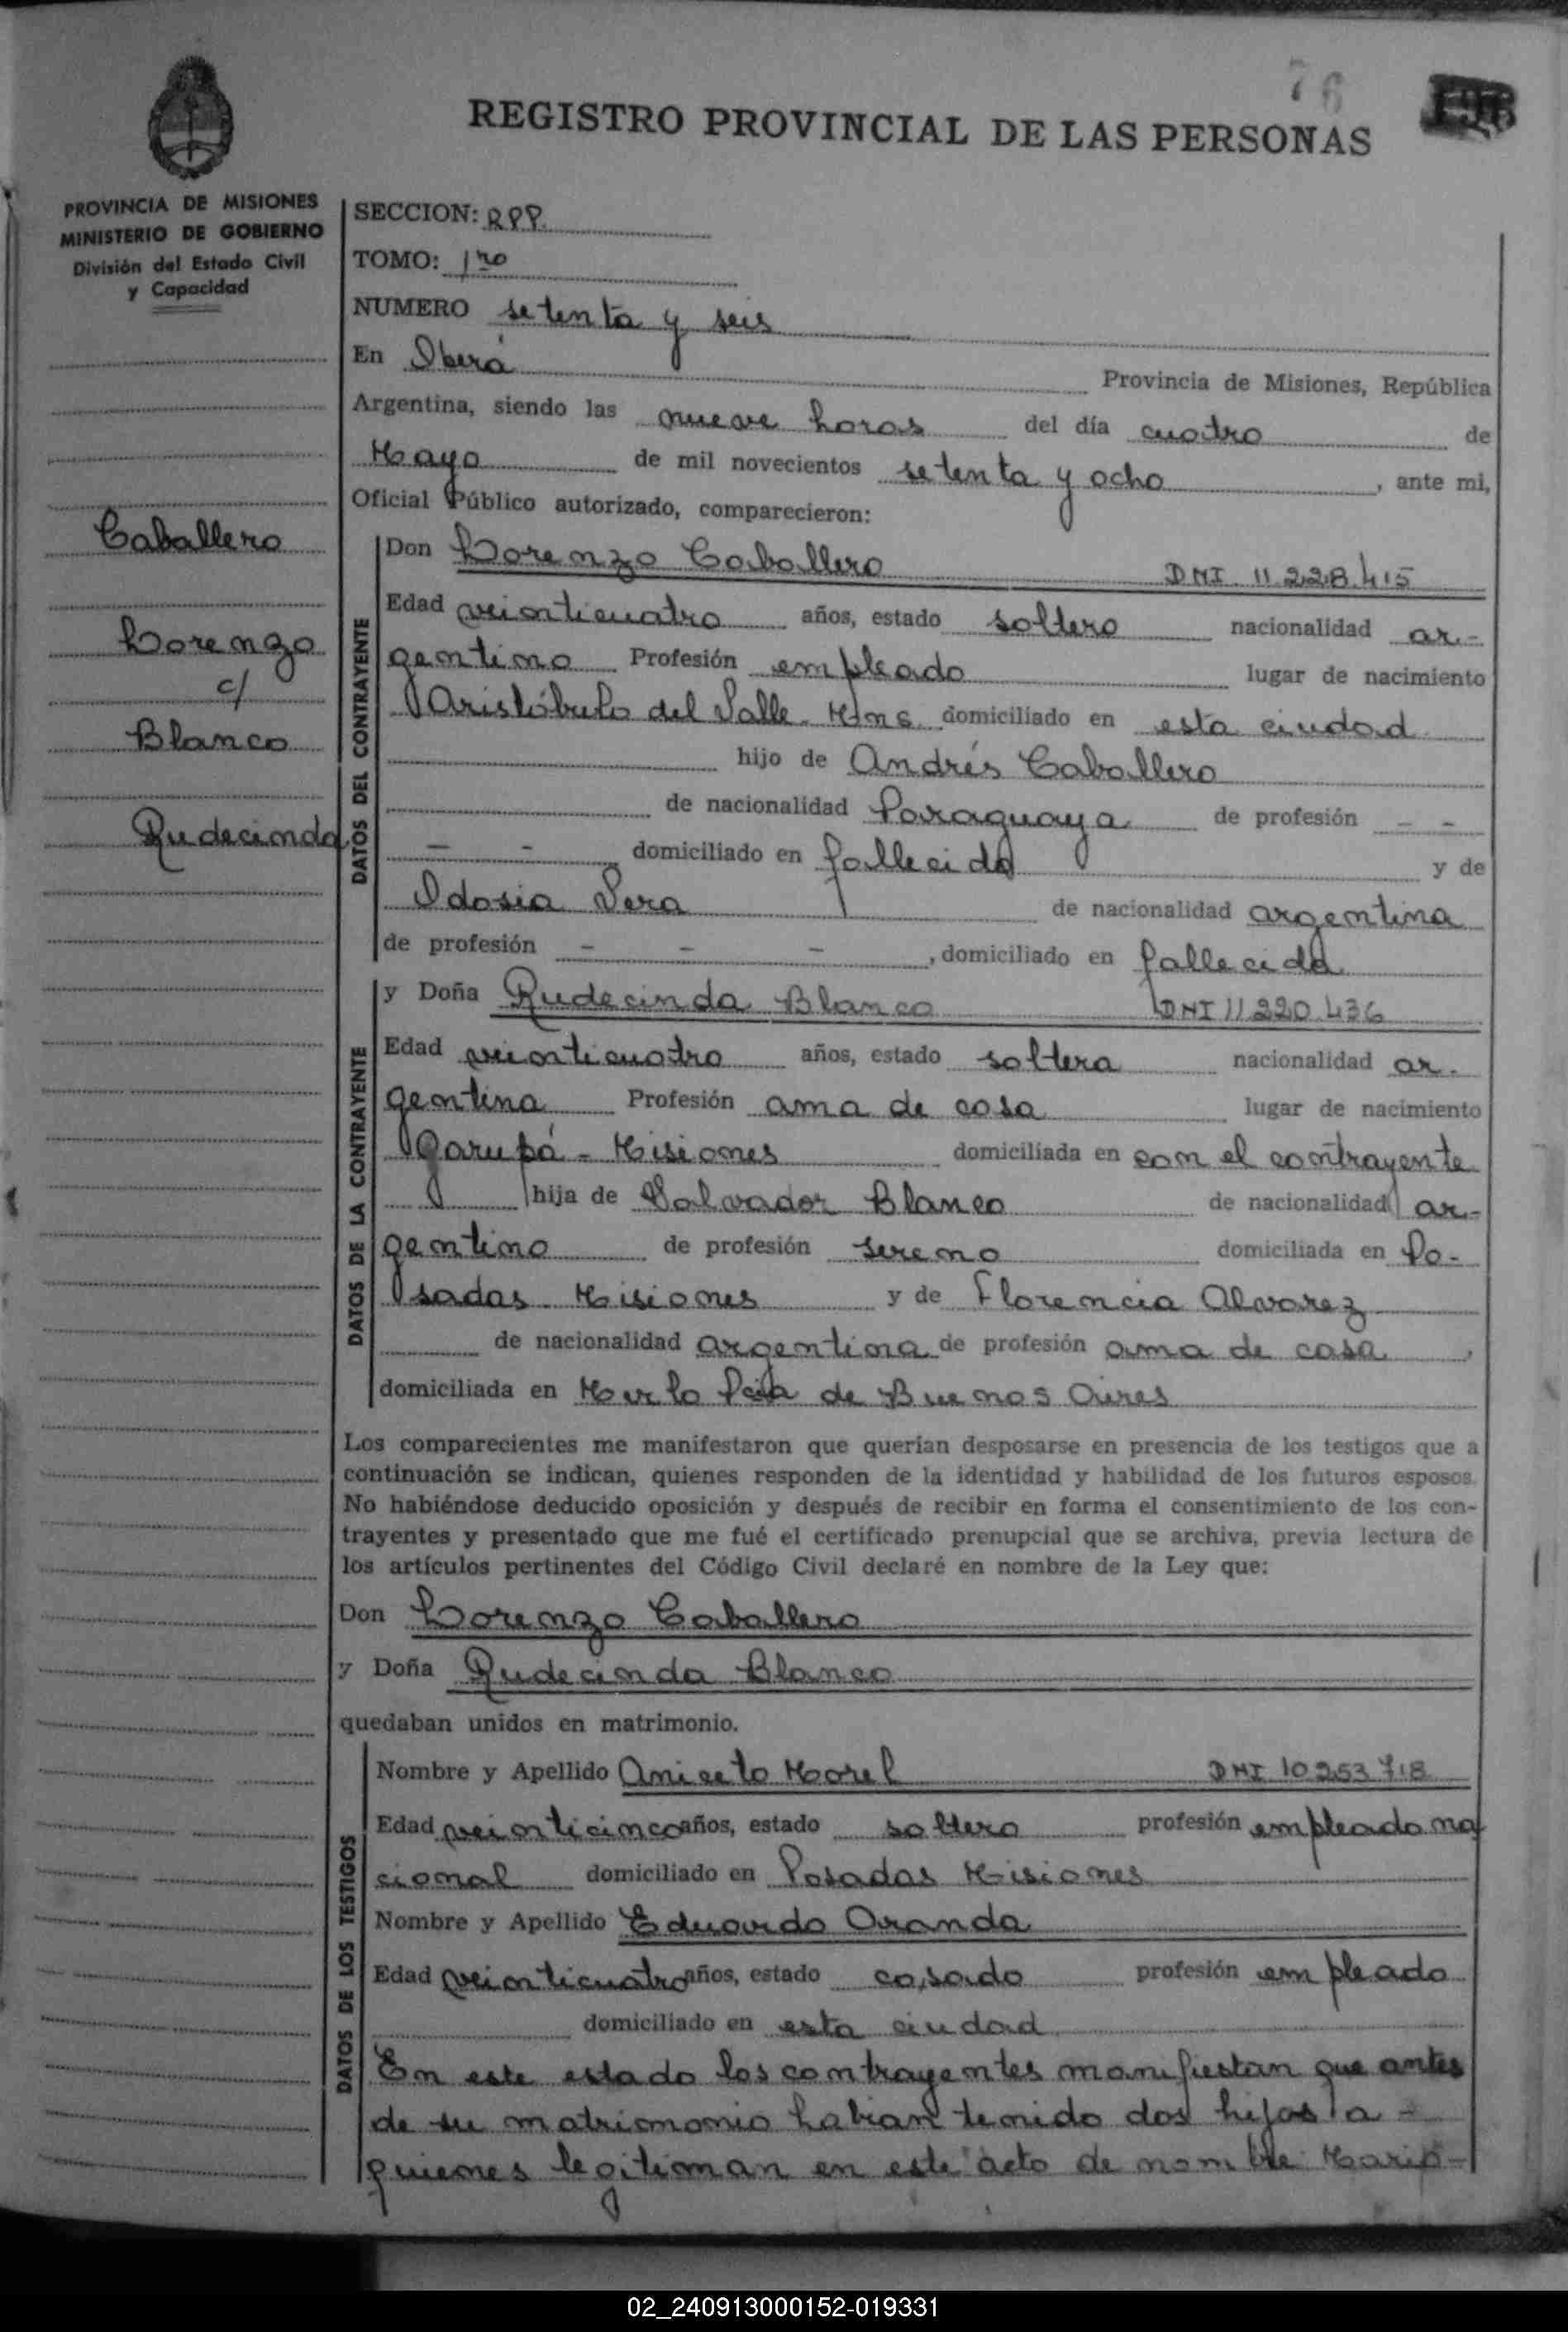 76
REGISTRO PROVINCIAL DE LAS PERSONAS
PROVINCIA DE MISIONES
MINISTERIO DE GOBIERNO
División del Estado Civil
y Capacidad
Caballero
Lorenzo
c/
Blanco
Rudecinda
SECCION: RPP.
TOMO: 1ro
NUMERO setenta y seis
En Oberá Provincia de Misiones, República
Argentina, siendo las nueve horas del día cuatro de
Mayo de mil novecientos setenta y ocho, ante mi,
Oficial Público autorizado, comparecieron:
DATOS DEL CONTRAYENTE
Don Lorenzo Caballero DNI 11.228.415
Edad veinticuatro años, estado soltero nacionalidad ar-
gentino Profesión empleado lugar de nacimiento
Aristóbulo del Valle. Mnes. domiciliado en esta ciudad
hijo de Andrés Caballero
de nacionalidad Paraguaya de profesión - -
- - domiciliado en fallecido y de
Idosia Vera de nacionalidad argentina
de profesión - - -, domiciliado en fallecida
DATOS DE LA CONTRAYENTE
y Doña Rudecinda Blanco DNI 11220.436
Edad veinticuatro años, estado soltera nacionalidad ar-
gentina Profesión ama de casa lugar de nacimiento
Garupá - Misiones domiciliada en con el contrayente
hija de Salvador Blanco de nacionalidad ar-
gentino de profesión sereno domiciliada en Po-
sadas. Misiones y de Florencia Alvarez
de nacionalidad argentina de profesión ama de casa,
domiciliada en Merlo Pcia de Buenos Aires
Los comparecientes me manifestaron que querían desposarse en presencia de los testigos que a
continuación se indican, quienes responden de la identidad y habilidad de los futuros esposos.
No habiéndose deducido oposición y después de recibir en forma el consentimiento de los con-
trayentes y presentado que me fué el certificado prenupcial que se archiva, previa lectura de
los artículos pertinentes del Código Civil declaré en nombre de la Ley que:
Don Lorenzo Caballero
y Doña Rudecinda Blanco
quedaban unidos en matrimonio.
DATOS DE LOS TESTIGOS
Nombre y Apellido Aniceto Morel DNI 10.253.718
Edad veinticinco años, estado soltero profesión empleado na
cional domiciliado en Posadas Misiones
Nombre y Apellido Eduardo Aranda
Edad veinticuatro años, estado casado profesión empleado
domiciliado en esta ciudad
En este estado los contrayentes manifiestan que antes
de su matrimonio habian tenido dos hijos a -
quienes legitiman en este acto de nombre Mario-
02_240913000152-019331